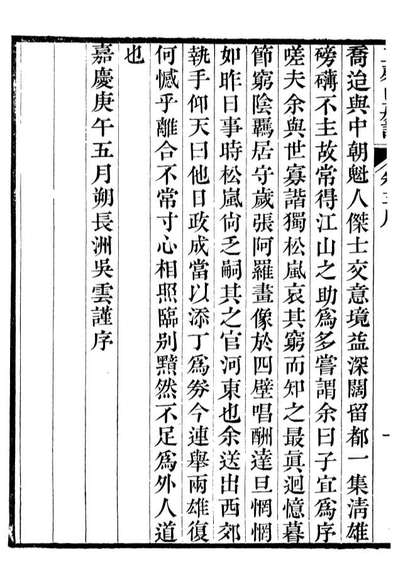 喬迨與中朝魁人傑士交意境益深闊留都一集淸雄
磅礴不主故常得江山之助爲多嘗謂余曰子宜爲序
嗟夫余與世寡諧獨松嵐哀其窮而知之最眞迴憶暮
節窮陰羈居守歲張阿羅畫像於四壁唱酬達旦惘惘
如昨日事時松嵐尙乏嗣其之官河東也余送出西郊
執手仰天曰他日政成當以添丁爲劵今連舉兩雄復
何憾乎離合不常寸心相照臨别黯然不足爲外人道
也
嘉慶庚午五月朔長洲吳雲謹序